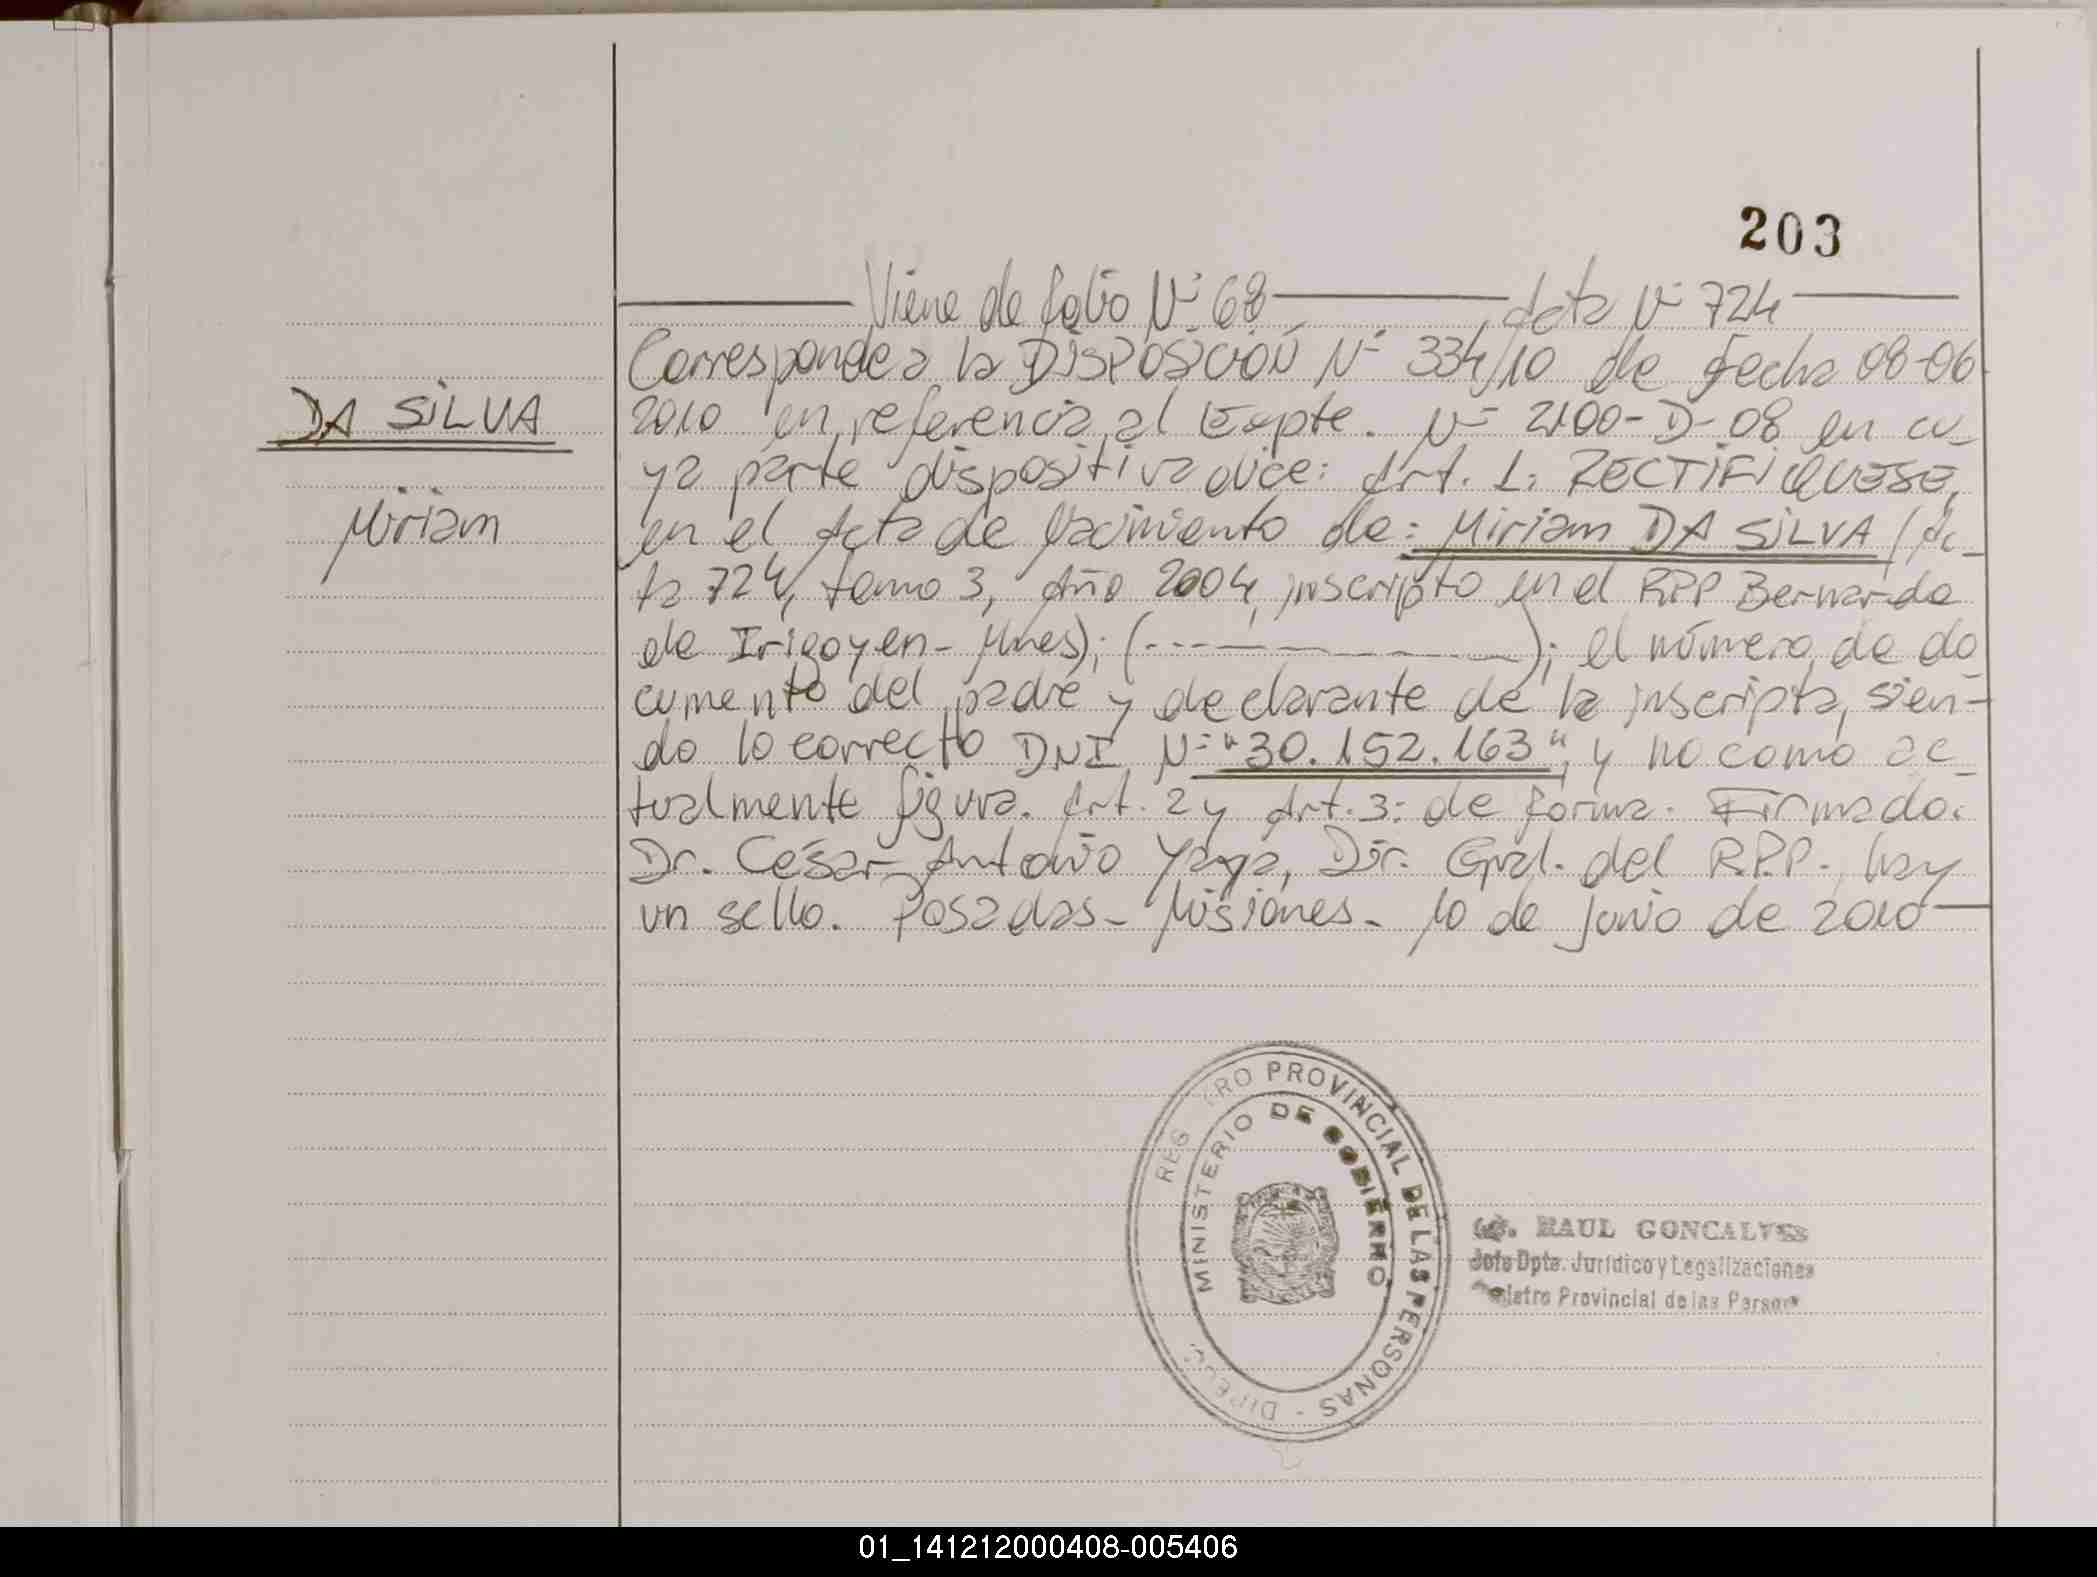 203
Viene de folio Nº 68 Acta Nº 724
Corresponde a la DISPOSICIÓN Nº 334/10 de fecha 08-06
DA SILVA
2010 en referencia al Expte. Nº 2100-D-08 en cu-
ya parte dispositiva dice: Art. 1: RECTIFIQUESE,
Miriam
en el Acta de Nacimiento de: Miriam DA SILVA (Ac-
ta 724, tomo 3, Año 2004, inscripto en el RPP Bernardo
de Irigoyen - Mnes); (------------); el número de do
cumento del padre y declarante de la inscripta, sien-
do lo correcto DNI Nº "30.152.163", y no como ac-
tualmente figura. Art. 2 y Art. 3: de forma. Firmado:
Dr. César Antonio Yaya, Dir. Gral. del R.P.P. hay
un sello. Posadas - Misiones - 10 de junio de 2010
REG TRO PROVINCIAL DE LAS PERSONAS -
MINISTERIO DE GOBIERRO
RAUL GONCALVES
Jefe Dpto. Jurídico y Legalizaciones
istro Provincial de las Person
01_141212000408-005406